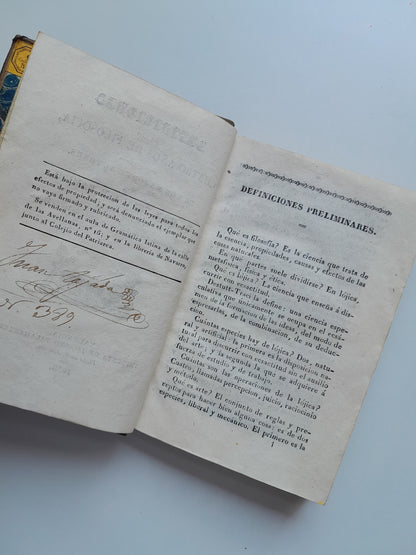 Está bajo la proteccion de las leyes para todos los
efectos de propiedad, y será denunciado el ejemplar que
no vaya firmado y rubricado.
Se venden en el aula de Gramática latina de la calle
de las Avellanas, nº 12, y en la librería de Navarro,
junto al Colejio del Patriarca.
Juan Tejada
N. 399.
DEFINICIONES PRELIMINARES.
Qué es filosofía? Es la ciencia que trata de
la esencia, propiedades, causas y efectos de las
cosas naturales.
En qué partes suele dividirse? En lójica,
metafísica, física y ética.
Qué es lójica? La ciencia que enseña á dis-
currir con exactitud.
Destutt-Traci la define: una ciencia espe-
culativa que unicamente se ocupa en el exá-
men de la formacion de las ideas, del modo de
espresarlas, de la combinacion, de su deduc-
cion &c.
Cuántas especies hay de lójica? Dos, natu-
ral y artificial: la primera es la disposicion na-
tural para discurrir con exactitud sin el ausilio
del arte; y la segunda la que se adquiere á
fuerza de estudio, y de trabajo.
Cuáles son las operaciones de la lójica?
Cuatro, llamadas percepcion, juicio, raciocinio
y método.
Qué es arte? El conjunto de reglas y pre-
ceptos para hacer bien alguna cosa; es de dos
especies, liberal y mecánico. El primero es la
1